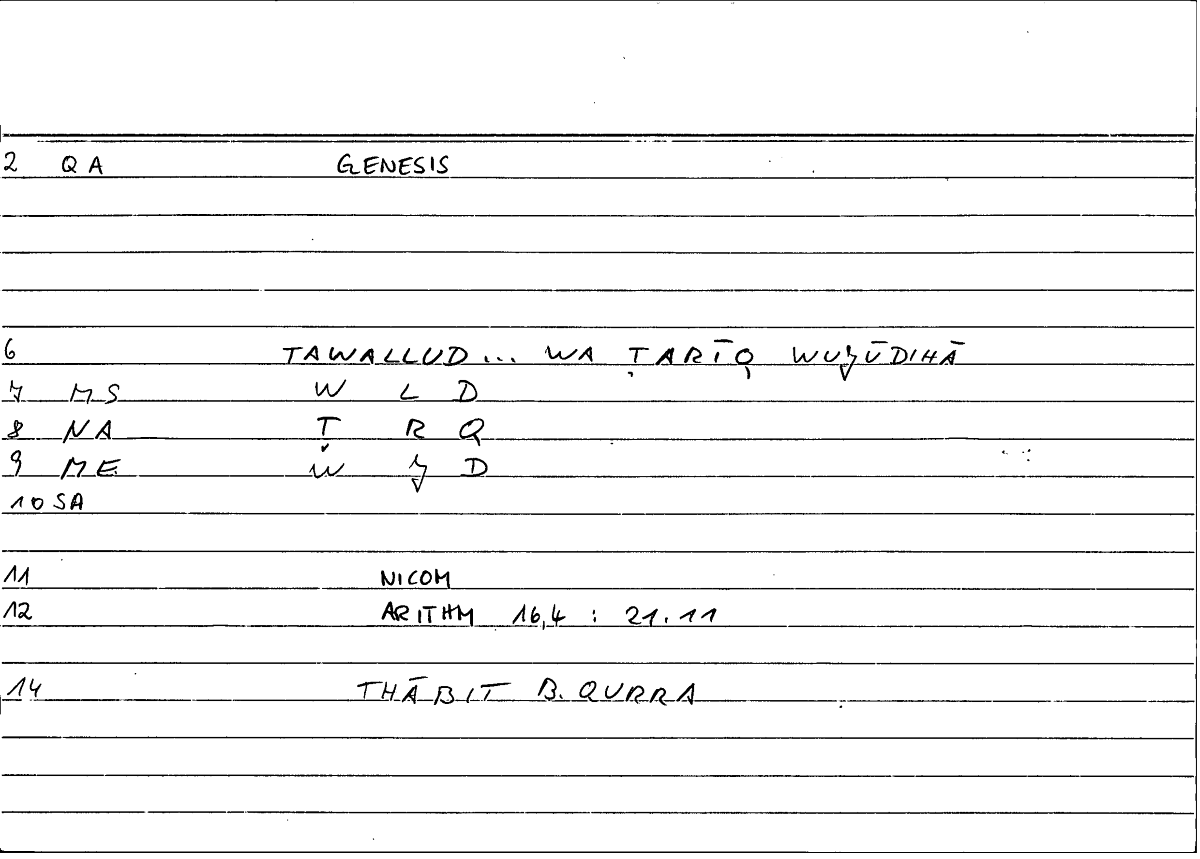 2 QA GENESIS
6 TAWALLUD... WA ṬARĪQ WUǦŪDIHĀ
7 MS W L D
8 NA Ṭ R Q
9 ME W Ǧ D
10 SA
11 NICOM
12 ARITHM 16,4 : 21.11
14 THĀBIT B. QURRA